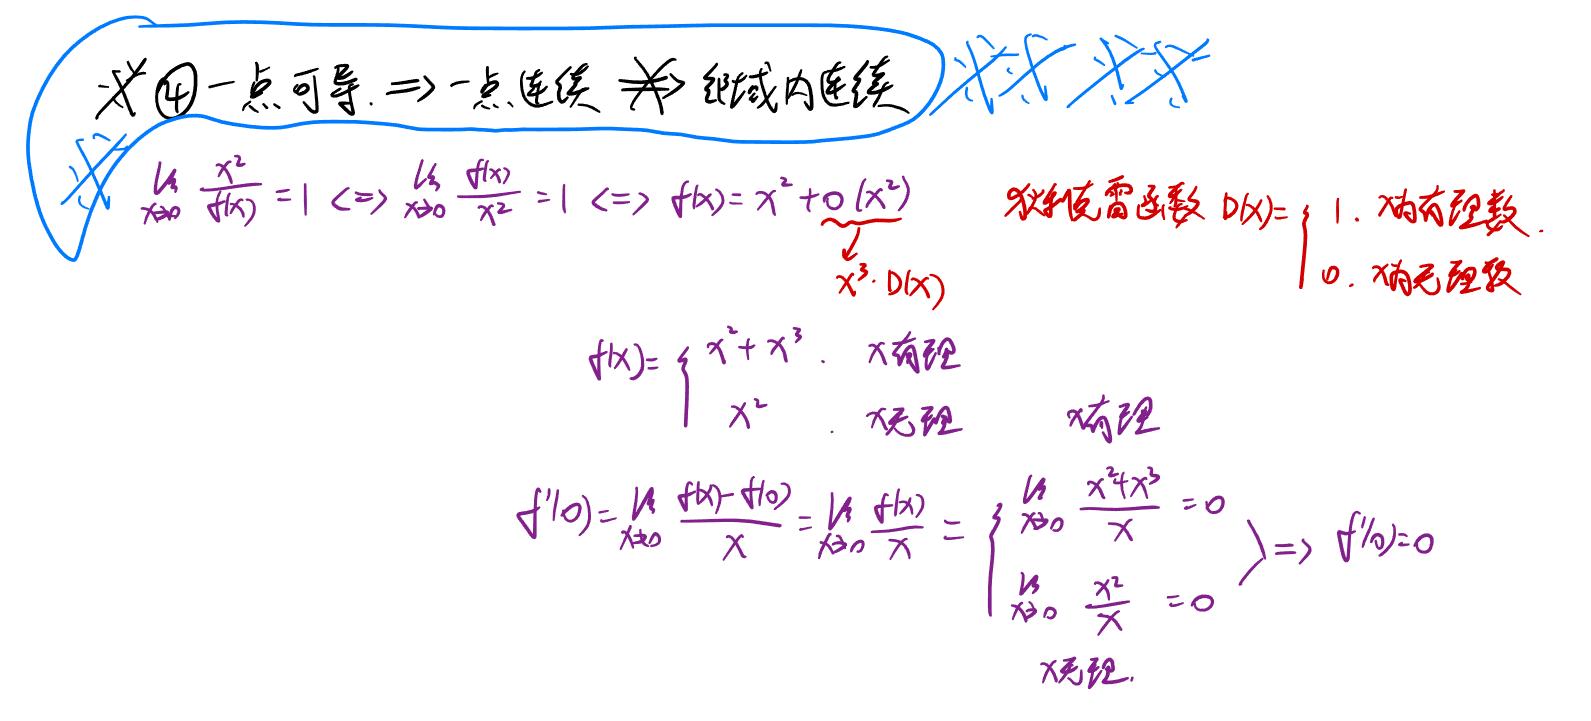 ※④一点可导. => 一点连续 ≠> 邻域内连续 ※※ ※※
※ lim x→0 x²/f(x) = 1 <=> lim x→0 f(x)/x² = 1 <=> f(x) = x² + o(x²)
狄利克雷函数 D(x) = { 1. x为有理数.
0. x为无理数
↓
x³·D(x)
f(x) = { x² + x³. x有理
x². x无理
x有理
f'(0) = lim x→0 (f(x) - f(0))/x = lim x→0 f(x)/x = { lim x→0 (x²+x³)/x = 0
lim x→0 x²/x = 0
} => f'(0) = 0
x无理.